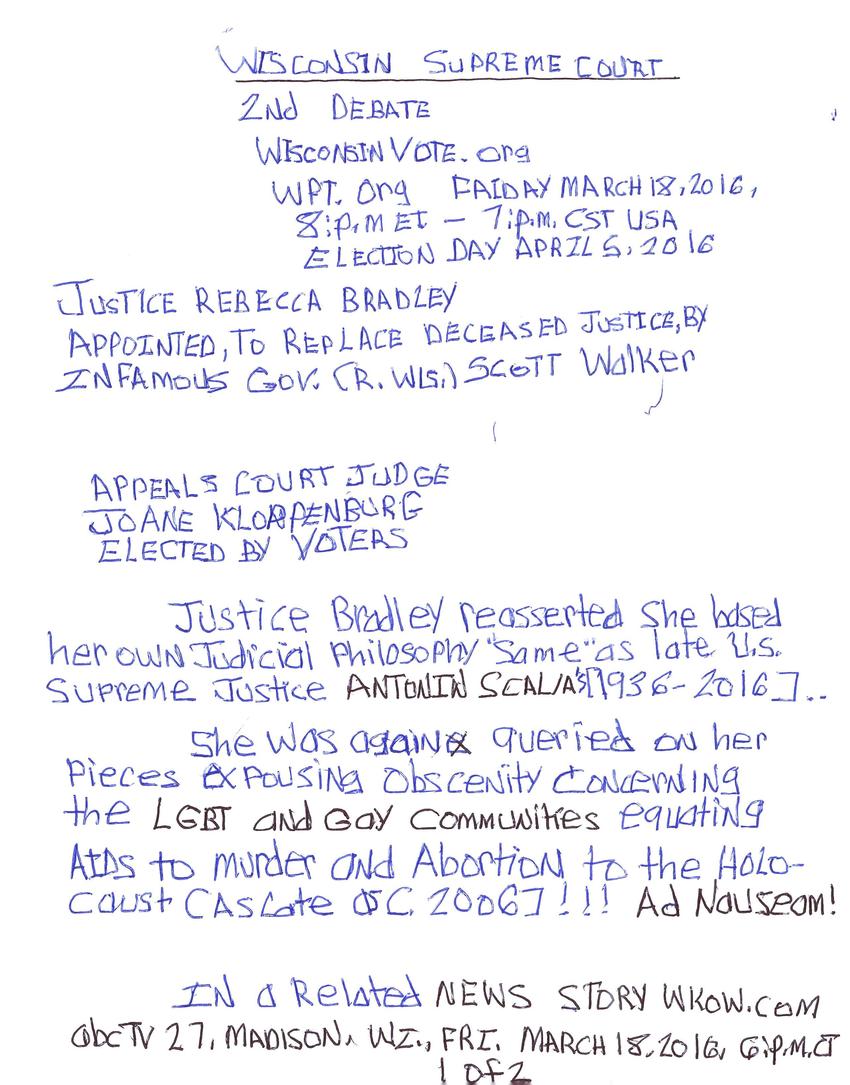 WISCONSIN SUPREME COURT
2Nd DEBATE
WISCONSIN VOTE. Org
WPT. Org FRIDAY MARCH 18, 2016,
8:p.M ET – 7:p.m. CST USA
ELECTION DAY APRIL 5, 2016
JUSTICE REBECCA BRADLEY
APPOINTED, TO REPLACE DECEASED JUSTICE, BY
INFAMOUS GOV. (R. WIS.) SCOTT Walker
APPEALS COURT JUDGE
JOANE KLOPPENBURG
ELECTED BY VOTERS
Justice Bradley reasserted She based
her OWN Judicial Philosophy "Same" as late U.S.
Supreme Justice ANTONIN SCALIA's [1936-2016]..
She was again queried on her
Pieces EXPOUSING Obscenity Concerning
the LGBT and Gay Communities equating
AIDs to murder and Abortion to the Holo-
caust [AS Late AS C. 2006] !!! Ad Nauseam!
IN a Related NEWS STORY WKOW.COM
abcTV 27, MADISON, WI., FRI. MARCH 18, 2016, 6:p.M.CT
1 of 2